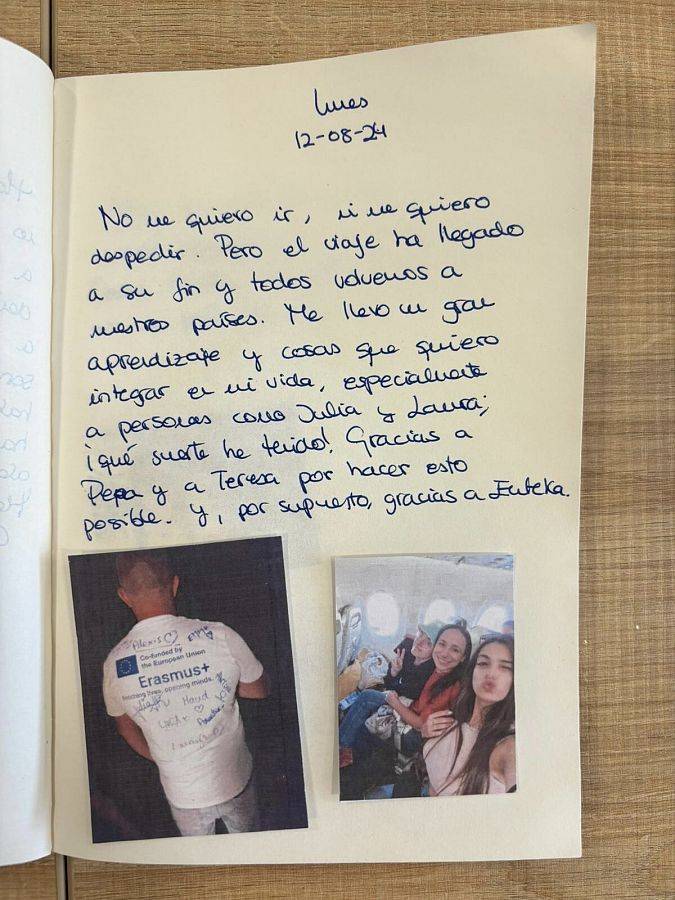 Lunes
12-08-24
No me quiero ir, ni me quiero
despedir. Pero el viaje ha llegado
a su fin y todos volvemos a
nuestros países. Me llevo un gran
aprendizaje y cosas que quiero
integrar en mi vida, especialmente
a personas como Julia y Laura;
¡qué suerte he tenido! Gracias a
Pepa y a Teresa por hacer esto
posible. Y, por supuesto, gracias a Euteka.
Alexis
Co-funded by
the European Union
Erasmus+
Enriching lives, opening minds.
Maud